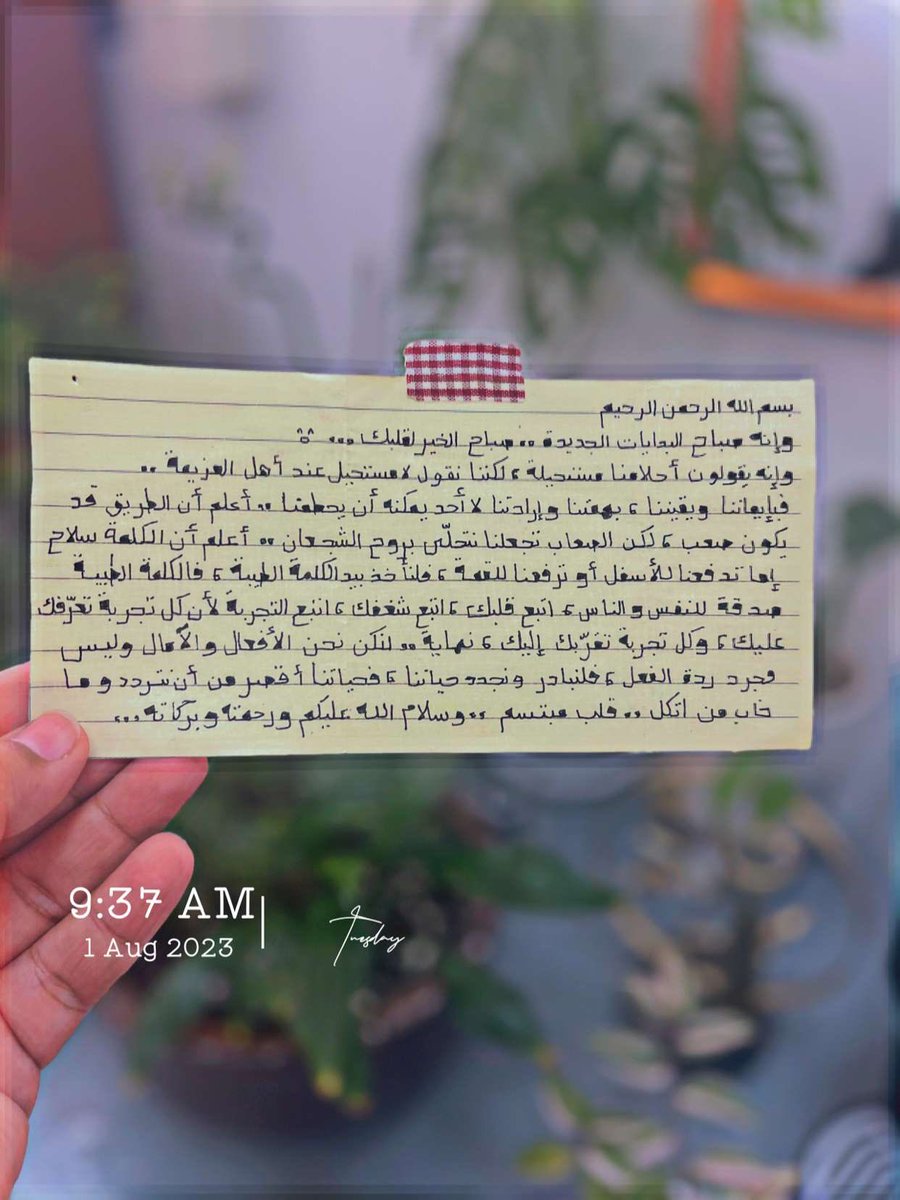 بسم الله الرحمن الرحيم
وإنه صباح البدايات الجديدة .. صباح الخير لقلبك ...
وإنه يقولون أحلامنا مستحيلة ، لكننا نقول لا مستحيل عند أهل العزيمة ..
فبإيماننا ويقيننا ، بهمتنا وإرادتنا لا أحد يمكنه أن يحطمنا .. أعلم أن الطريق قد
يكون صعب ، لكن الصعاب تجعلنا نتحلّى بروح الشجعان .. أعلم أن الكلمة سلاح
إما تدفعنا للأسفل أو ترفعنا للقمة ، فلنأخذ بيد الكلمة الطيبة ، فالكلمة الطيبة
صدقة للنفس والناس ، اتبع قلبك ، اتبع شغفك ، اتبع التجربة لأن كل تجربة تعرّفك
عليك ، وكل تجربة تقرّبك إليك ، نهاية .. لنكن نحن الأفعال والآمال وليس
مجرد ردة الفعل ، فلنبادر ونجدد حياتنا ، فحياتنا أقصر من أن نتردد وما
خاب من اتكل .. قلب مبتسم .. وسلام الله عليكم ورحمته وبركاته ...
9:37 AM
1 Aug 2023
Tuesday